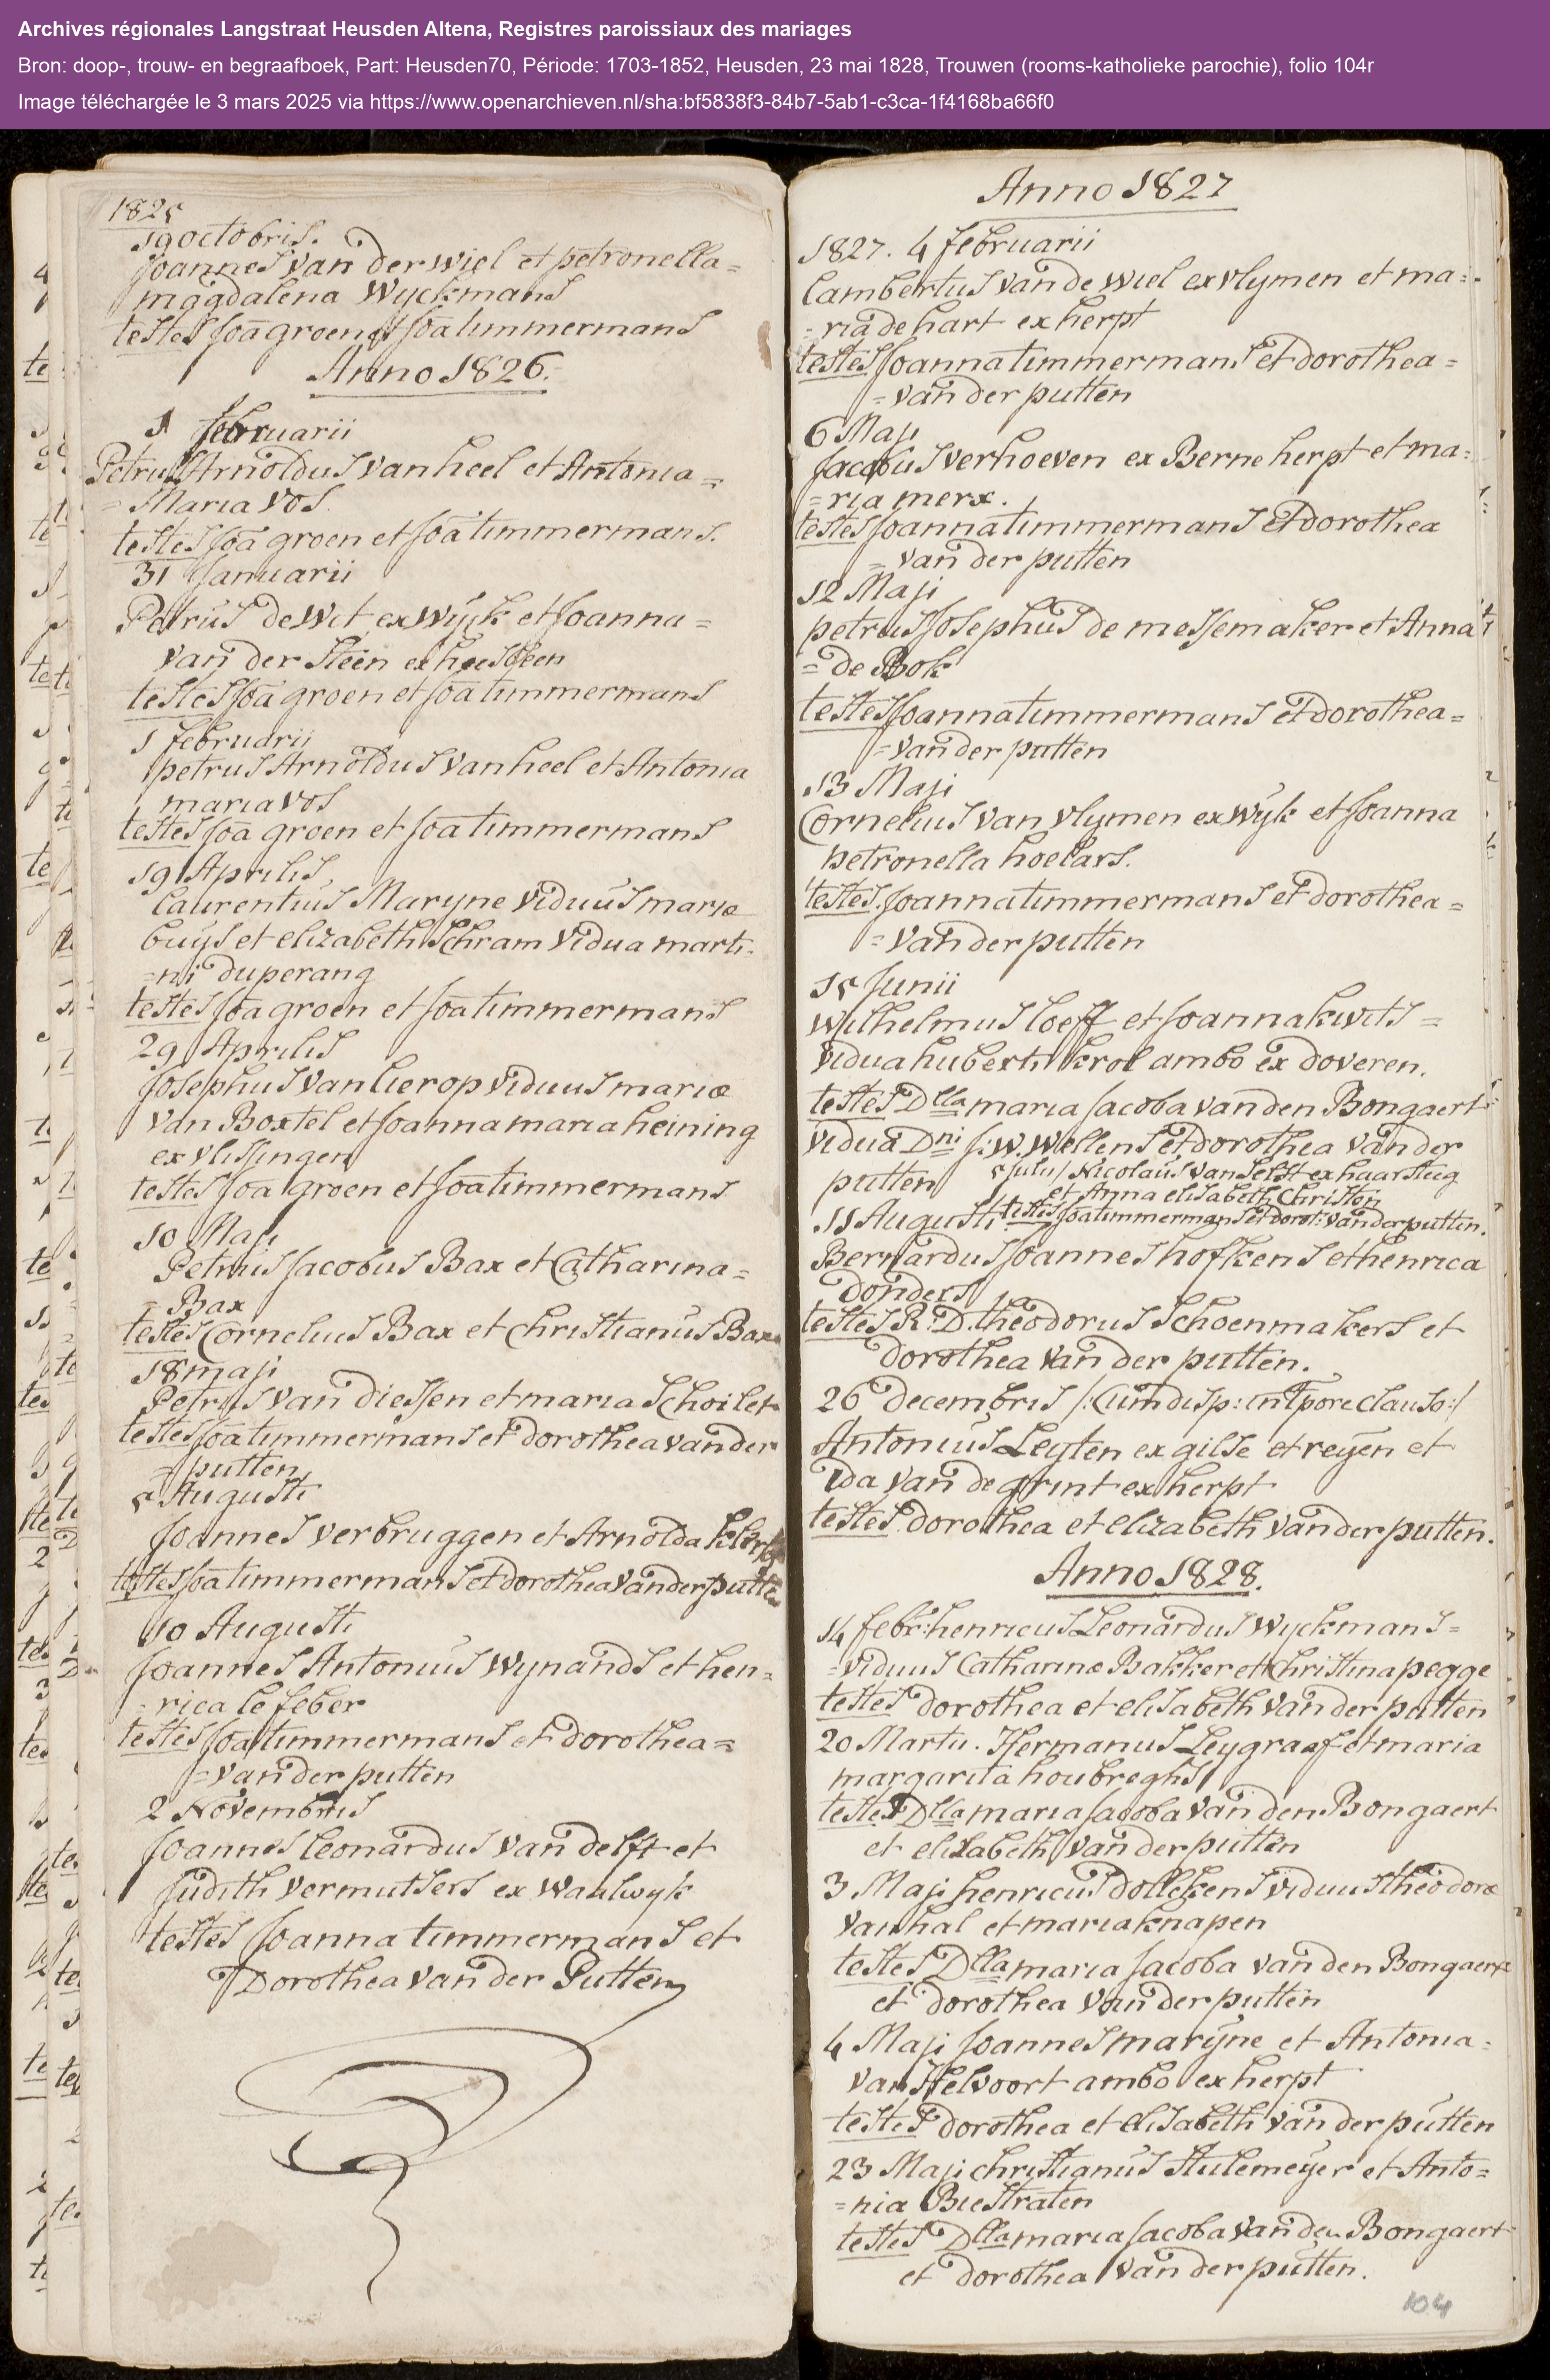 Archives régionales Langstraat Heusden Altena, Registres paroissiaux des mariages
Bron: doop-, trouw- en begraafboek, Part: Heusden70, Période: 1703-1852, Heusden, 23 mai 1828, Trouwen (rooms-katholieke parochie), folio 104r
Image téléchargée le 3 mars 2025 via https://www.openarchieven.nl/sha:bf5838f3-84b7-5ab1-c3ca-1f4168ba66f0
1825
19 octobris.
Joannes van der wiel et petronella=
magdalena Wyckmans
testes Joā groen et Joā timmermans
Anno 1826.
1 februarii
Petrus Arnoldus van heel et Antonia=
=Maria Vos.
testes Joā groen et Joā timmermans.
31 Januarii
Petrus de Wit ex Wÿck et Joanna=
van der Steen ex heusden
testes Joā groen et Joā timmermans
1 februarii
petrus Arnoldus van heel et Antonia
maria vos
testes Joā groen et Joā timmermans
19 Aprilis
Laurentius Maryne Viduus mariæ
buys et elizabeth Schram Vidua marti=
=ni duperang
testes Joā groen et Joā timmermans
29 Aprilis
Josephus van lierop viduus mariæ
van Boxtel et Joanna maria heining
ex vlissingen
testes Joā groen et Joā timmermans
10 Maji
Petrus Jacobus Bax et Catharina=
Bax
testes Cornelius Bax et Christianus Bax
18 maji
Petrus van diessen et maria Schoilet
testes Joā timmermans et dorothea van der
=putten
5 Augusti
Joannes verbruggen et Arnolda
testes Joā timmermans et dorothea van der putte
10 Augusti
Joannes Antonius Wynands et hen=
=rica le feber
testes Joā timmermans et dorothea=
=van der putten
2 Novembris
Joannes leonardus van delft et
Judith vermutsers ex Waalwyk
testes Joanna timmermans et
Dorothea van der Putten
Anno 1827
1827. 4 februarii
Lambertus van de wiel ex vlymen et ma=
=ria de hart ex herpt
testes Joanna timmermans et dorothea=
=van der putten
6 Maji
Jacobus verhoeven ex Berne herpt et ma=
=ria merx.
testes Joanna timmermans et dorothea
=van der putten
12 Maji
petrus Josephus de messemaker et Anna
=de Bok
testes Joanna timmermans et dorothea=
=van der putten
13 Maji
Cornelius van vlymen ex Wÿk et Joanna
petronella hoelars.
testes. Joanna timmermans et dorothea=
=Van der putten
15 Junii
Wilhelmus loeff et Joanna kwits=
vidua huberti krol ambo ex doveren.
testes Dlla maria Jacoba van den Bongaert
vidua Dni J: W. Wellens et dorothea van der
putten 5 Julii / Nicolaus van Selst ex haarsteeg
et Anna elisabeth Christon
11 Augusti testes Joā timmermans et dorot: van der putten.
Bernardus Joannes hofkens et henrica
donders
testes R: D. theodorus Schoenmakers et
dorothea van der putten.
26 decembris /: Cum disp: in tpore clauso:/
Antonius Leyten ex gilse et reyen et
Ida van de grint ex herpt
testes. dorothea et elizabeth van der putten.
Anno 1828.
14 febr: henricus Leonardus Wyckmans=
=viduus Catharinæ Bakker et Christina pegge
testes dorothea et elisabeth van der putten
20 Martii. Hermanus Leygraaf et maria
margarita houbreghs
testes Dlla maria Jacoba van den Bongaert
et elizabeth van der putten
3 Maji henricus dollekens viduus theodoræ
van hal et maria knapen
testes Dlla maria Jacoba van den Bongaert
et dorothea van der putten
4 Maji Joannes marÿne et Antonia=
van Helvoort ambo ex herpt
testes dorothea et elisabeth van der putten
23 Maji christianus Stulemeÿer et Anto=
=nia Biestraten
testes Dlla maria Jacoba van den Bongaert
et dorothea van der putten.
104